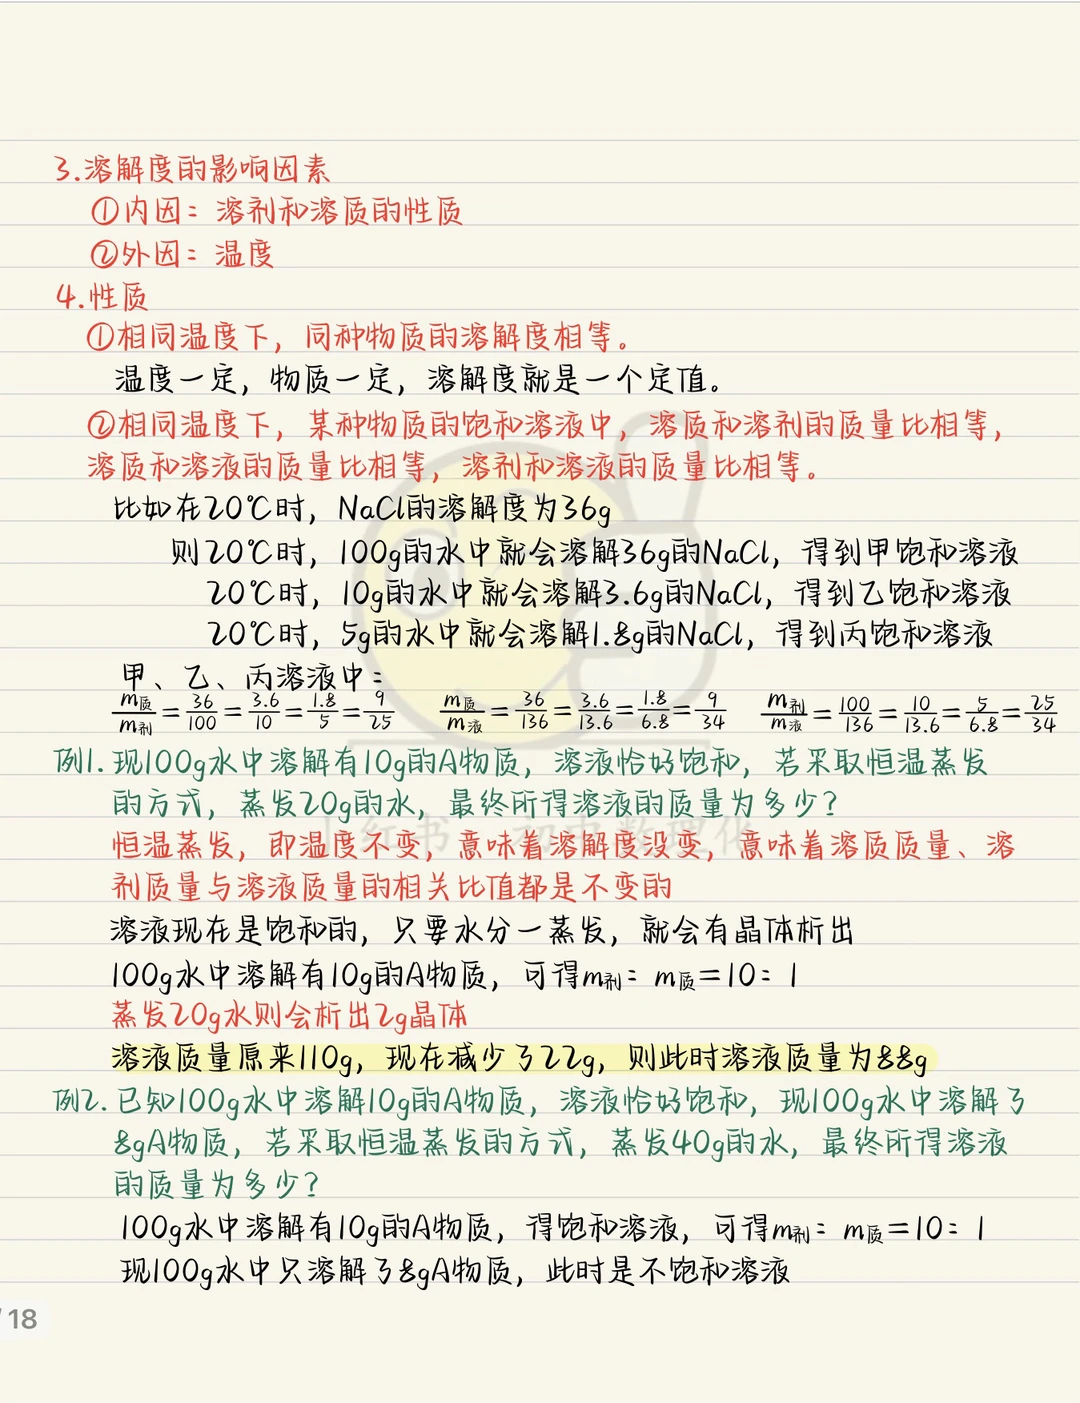 3.溶解度的影响因素
①内因：溶剂和溶质的性质
②外因：温度
4.性质
①相同温度下，同种物质的溶解度相等。
温度一定，物质一定，溶解度就是一个定值。
②相同温度下，某种物质的饱和溶液中，溶质和溶剂的质量比相等，
溶质和溶液的质量比相等，溶剂和溶液的质量比相等。
比如在20℃时，NaCl的溶解度为36g
则20℃时，100g的水中就会溶解36g的NaCl，得到甲饱和溶液
20℃时，10g的水中就会溶解3.6g的NaCl，得到乙饱和溶液
20℃时，5g的水中就会溶解1.8g的NaCl，得到丙饱和溶液
甲、乙、丙溶液中：
m质/m剂=36/100=3.6/10=1.8/5=9/25 m质/m液=36/136=3.6/13.6=1.8/6.8=9/34 m剂/m液=100/136=10/13.6=5/6.8=25/34
例1.现100g水中溶解有10g的A物质，溶液恰好饱和，若采取恒温蒸发
的方式，蒸发20g的水，最终所得溶液的质量为多少？
小红书 初中数理化
恒温蒸发，即温度不变，意味着溶解度没变，意味着溶质质量、溶
剂质量与溶液质量的相关比值都是不变的
溶液现在是饱和的，只要水分一蒸发，就会有晶体析出
100g水中溶解有10g的A物质，可得m剂：m质=10：1
蒸发20g水则会析出2g晶体
溶液质量原来110g，现在减少了22g，则此时溶液质量为88g
例2.已知100g水中溶解10g的A物质，溶液恰好饱和，现100g水中溶解了
8gA物质，若采取恒温蒸发的方式，蒸发40g的水，最终所得溶液
的质量为多少？
100g水中溶解有10g的A物质，得饱和溶液，可得m剂：m质=10：1
现100g水中只溶解了8gA物质，此时是不饱和溶液
/18